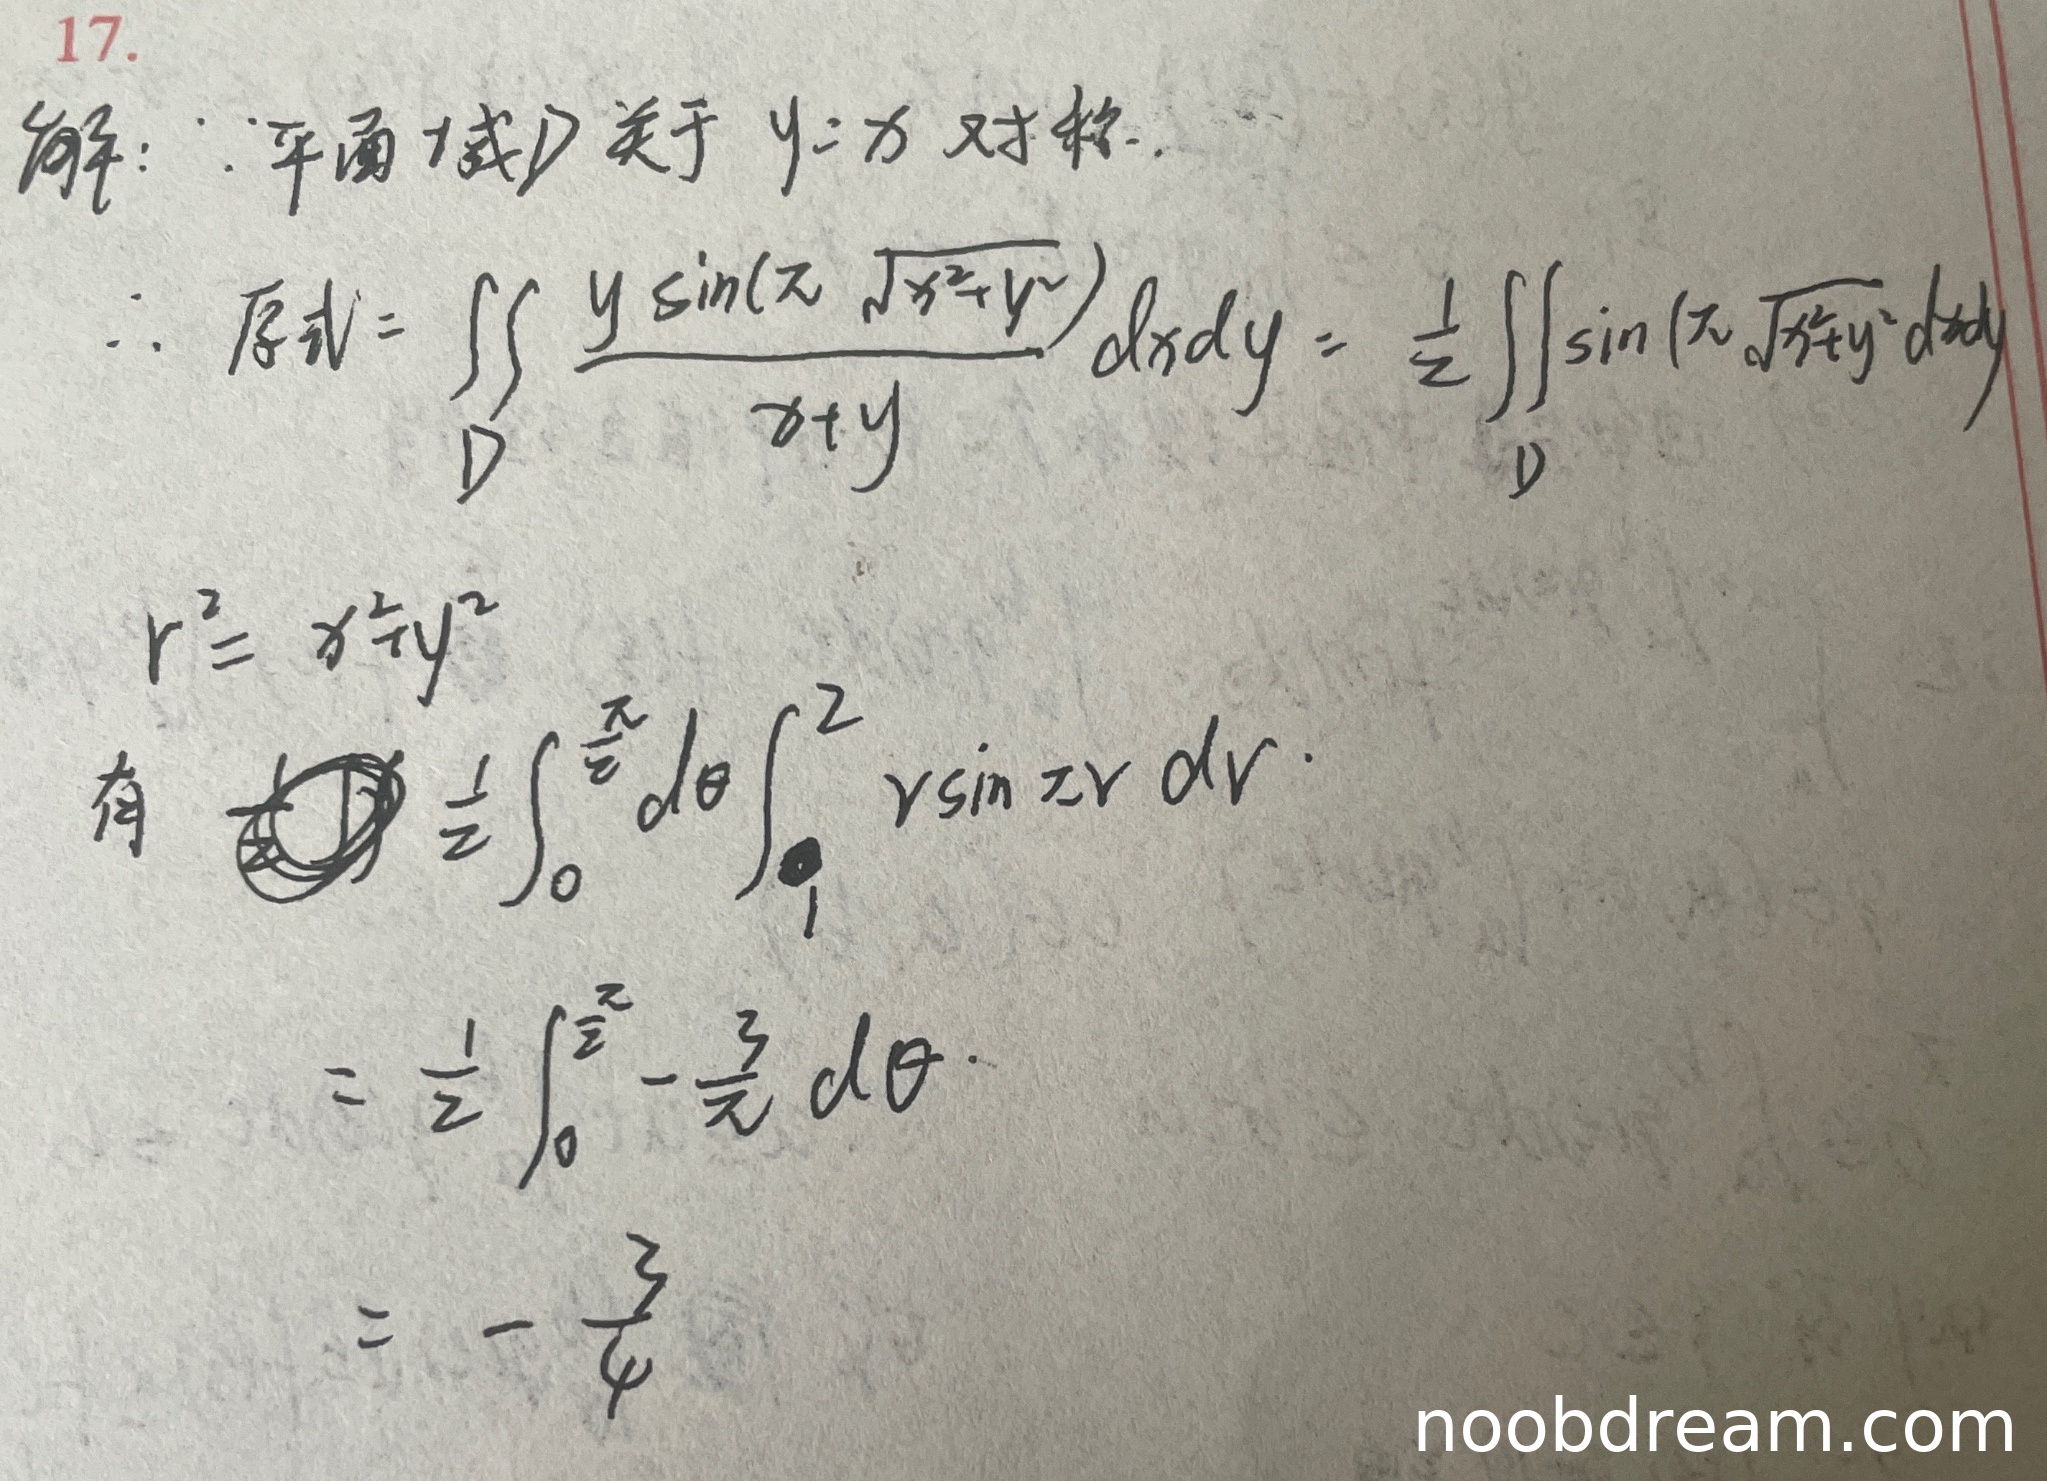 17.
解: ∵平面域D 关于 y=x 对称.
∴ 原式= ∬_D \frac{y sin(π √(x²+y²))}{x+y} dxdy = \frac{1}{2} ∬_D sin(π √(x²+y²) dxdy
r² = x²+y²
有 \frac{1}{2} ∫_0^{\frac{π}{2}} dθ ∫_1^2 r sin πr dr.
= \frac{1}{2} ∫_0^{\frac{π}{2}} -\frac{3}{π} dθ.
= -\frac{3}{4}
noobdream.com